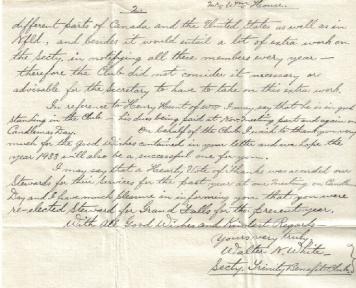 2
Mr Wm. House.
different part of Canada and the United States as well as in
Nfld., and besides it would entail a lot of extra work on
the Secty, in notifying all these members every year —
therefore the Club did not consider it necessary or
advisable for the Secretary to have to take on this extra work.
In reference to Henry Hunt of I may say that he is in good
standing in the Club — his dues being paid at Nov. Meeting past and again on
Candlemas Day. On behalf of the Club I wish to thank you very
much for the Good Wishes contained in your letter and we hope the
year 1933 will also be a successful one for you.
I may say that a Hearty Vote of Thanks was accorded our
Stewards for their Services for the past year at our Meeting on Candlemas
Day and I have much pleasure in informing you that you were
re-elected Steward for Grand Falls for the present year.
With All Good Wishes and Kindest Regards —
Yours very truly
Walter N. White
Secty. Trinity Benefit Club